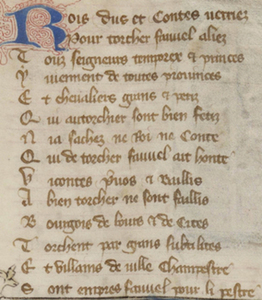 Rois dus et Contes verriez
Pour torcher fauuel aliez
Touz seigneurs temporex & princes
Y uiennent de toutes prouinces
Et cheualiers grans & petiz
Qui au torchier sont bien fetiz
Nia sachez ne Roi ne Conte
Qui de torcher fauuel ait honte
Vicontes p'uos & Baillis
A bien torcher ne sont faillis
Borgois de bours & de Cites
Torchent par grans subtilites
Et villains de uille Champestre
Sont empres fauuel pour li pestre